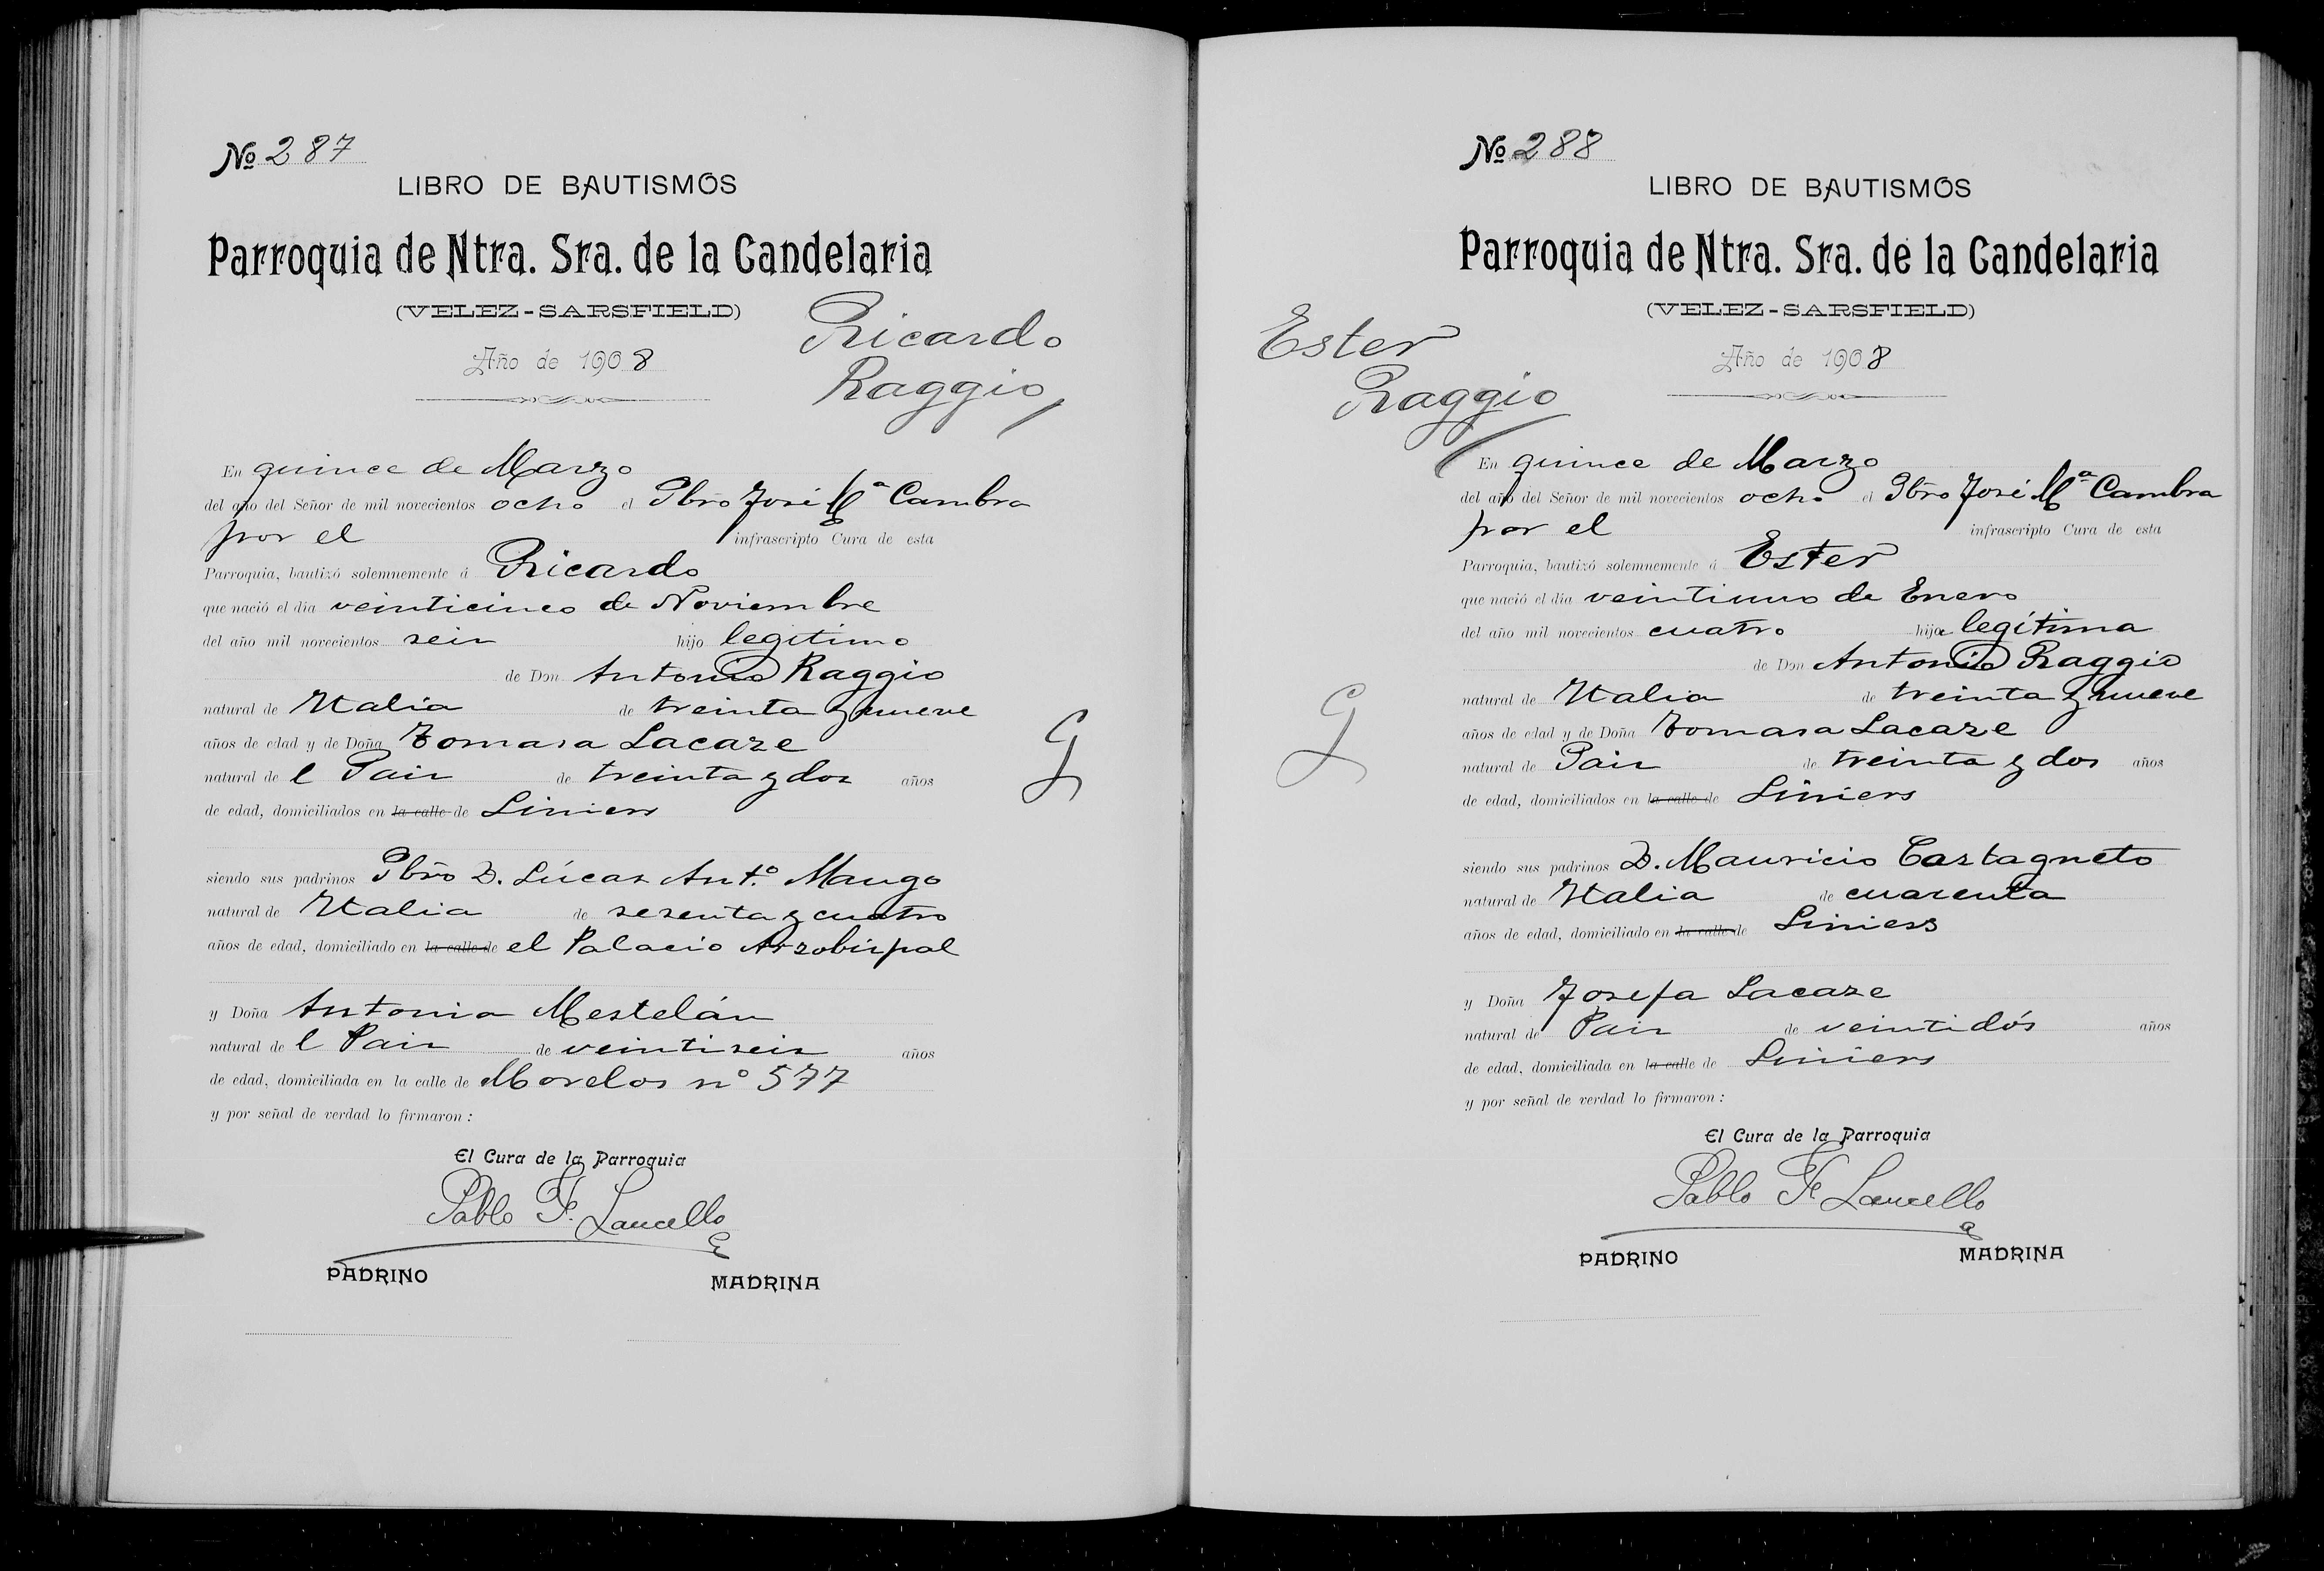 Nº 287
LIBRO DE BAUTISMOS
Parroquia de Ntra. Sra. de la Candelaria
(VELEZ-SARSFIELD)
Ricardo
Raggio
Año de 1908
En quince de Marzo
del año del Señor de mil novecientos ocho el Pbro José Mª Cambra
por el infrascripto Cura de esta
Parroquia, bautizó solemnemente á Ricardo
que nació el dia veinticinco de Noviembre
del año mil novecientos seis hijo legitimo
de Don Antonio Raggio
natural de Italia de treinta y nueve
años de edad y de Doña Tomasa Lacaze
natural de l Pais de treinta y dos años
de edad, domiciliados en la calle de Liniers
G
siendo sus padrinos Pbro D. Lúcas Ant.º Mango
natural de Italia de sesenta y cuatro
años de edad, domiciliado en la calle de el Palacio Arzobispal
y Doña Antonia Mestelán
natural de l Pais de veintiseis años
de edad, domiciliada en la calle de Morelos nº 577
y por señal de verdad lo firmaron:
El Cura de la Parroquia
Pablo F. Lancello
PADRINO MADRINA
Nº 288
LIBRO DE BAUTISMOS
Parroquia de Ntra. Sra. de la Candelaria
(VELEZ-SARSFIELD)
Ester
Raggio
Año de 1908
En quince de Marzo
del año del Señor de mil novecientos ocho el Pbro José Mª Cambra
por el infrascripto Cura de esta
Parroquia, bautizó solemnemente á Ester
que nació el dia veintiuno de Enero
del año mil novecientos cuatro hija legítima
de Don Antonio Raggio
natural de Italia de treinta y nueve
años de edad y de Doña Tomasa Lacaze
natural de Pais de treinta y dos años
de edad, domiciliados en la calle de Liniers
G
siendo sus padrinos D. Mauricio Castagneto
natural de Italia de cuarenta
años de edad, domiciliado en la calle de Liniers
y Doña Josefa Lacaze
natural de Pais de veintidós años
de edad, domiciliada en la calle de Liniers
y por señal de verdad lo firmaron:
El Cura de la Parroquia
Pablo F. Lancello
PADRINO MADRINA